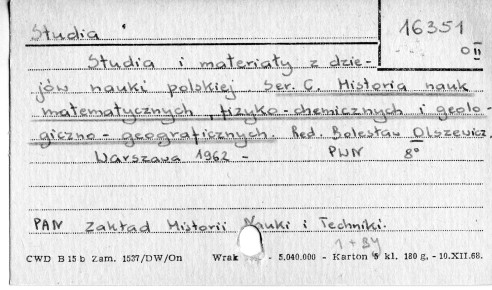 Studia
16351
O II
Studia i materiały z dzie-
jów nauki polskiej. Ser. C. Historia nauk
matematycznych, fizyko-chemicznych i geolo-
giczno-geograficznych. Red. Bolesław Olszewicz.
Warszawa 1962 - PWN 8°
PAN Zakład Historii Nauki i Techniki.
1 + 84
CWD B 15 b Zam. 1537/DW/On Wrak - 5.040.000 - Karton 5 kl. 180 g, - 10.XII.68.